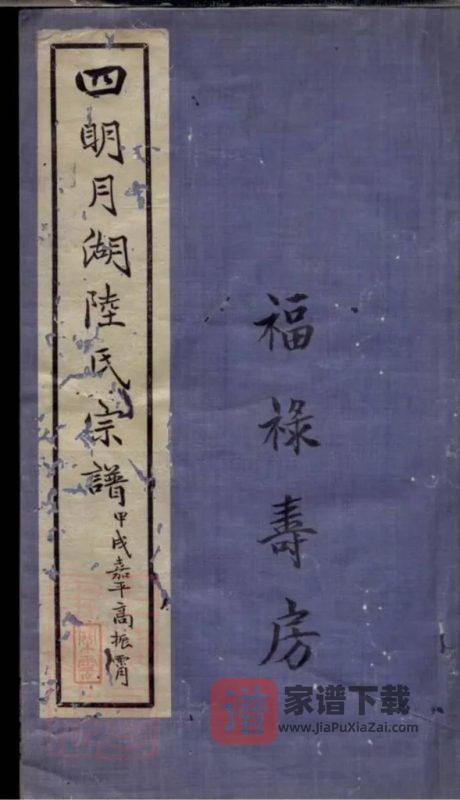 福祿壽房
四明月湖陸氏宗譜
甲戌嘉平高振霄
谱
家谱下载
www.JiaPuXiaZai.com